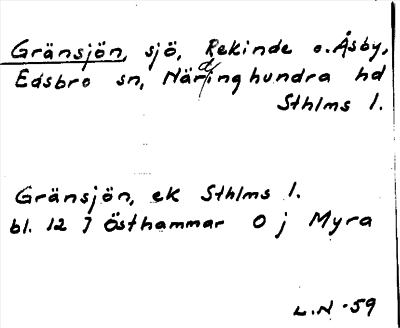 Gränsjön, sjö, Rekinde o. Åsby,
Edsbro sn, Närdinghundra hd
Sthlms l.
Gränsjön, ek Sthlms l.
bl. 12 J Östhammar O j Myra
L.N -59